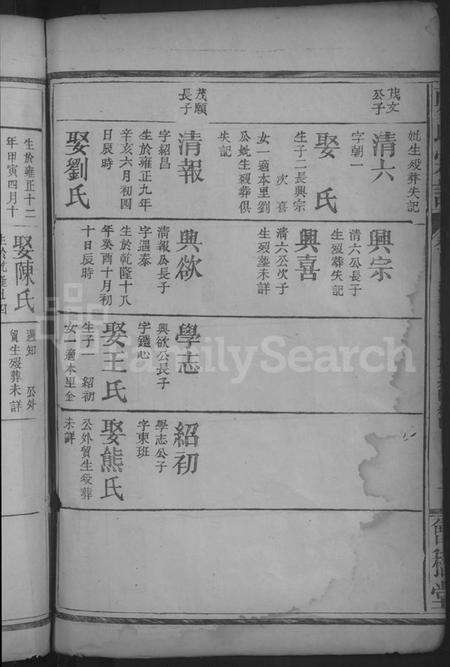 妣生殁葬失記
茂文
公子
清六
字朝一
娶 氏
生子二長興宗
次喜
女一適本里劉
公妣生殁葬俱
失記
茂願
長子
清報
字紹昌
生於雍正九年
辛亥六月初四
日辰時
娶劉氏
興宗
清六公長子
生殁葬失記
興喜
清六公次子
生殁葬未詳
興欲
清報公長子
字遇泰
生於乾隆十八
年癸酉十月初
十日辰時
學志
興欲公長子
字鑑心
娶王氏
生子一 紹初
女一適本里金
紹初
學志公子
字東班
娶熊氏
公外貿生殁葬
未詳
生於雍正十二
年甲寅四月十
娶陳氏
生於乾隆
公外
貿生殁葬未詳
FamilySearch